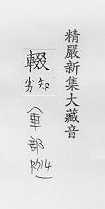 精嚴新集大藏音
輟
知劣
車部